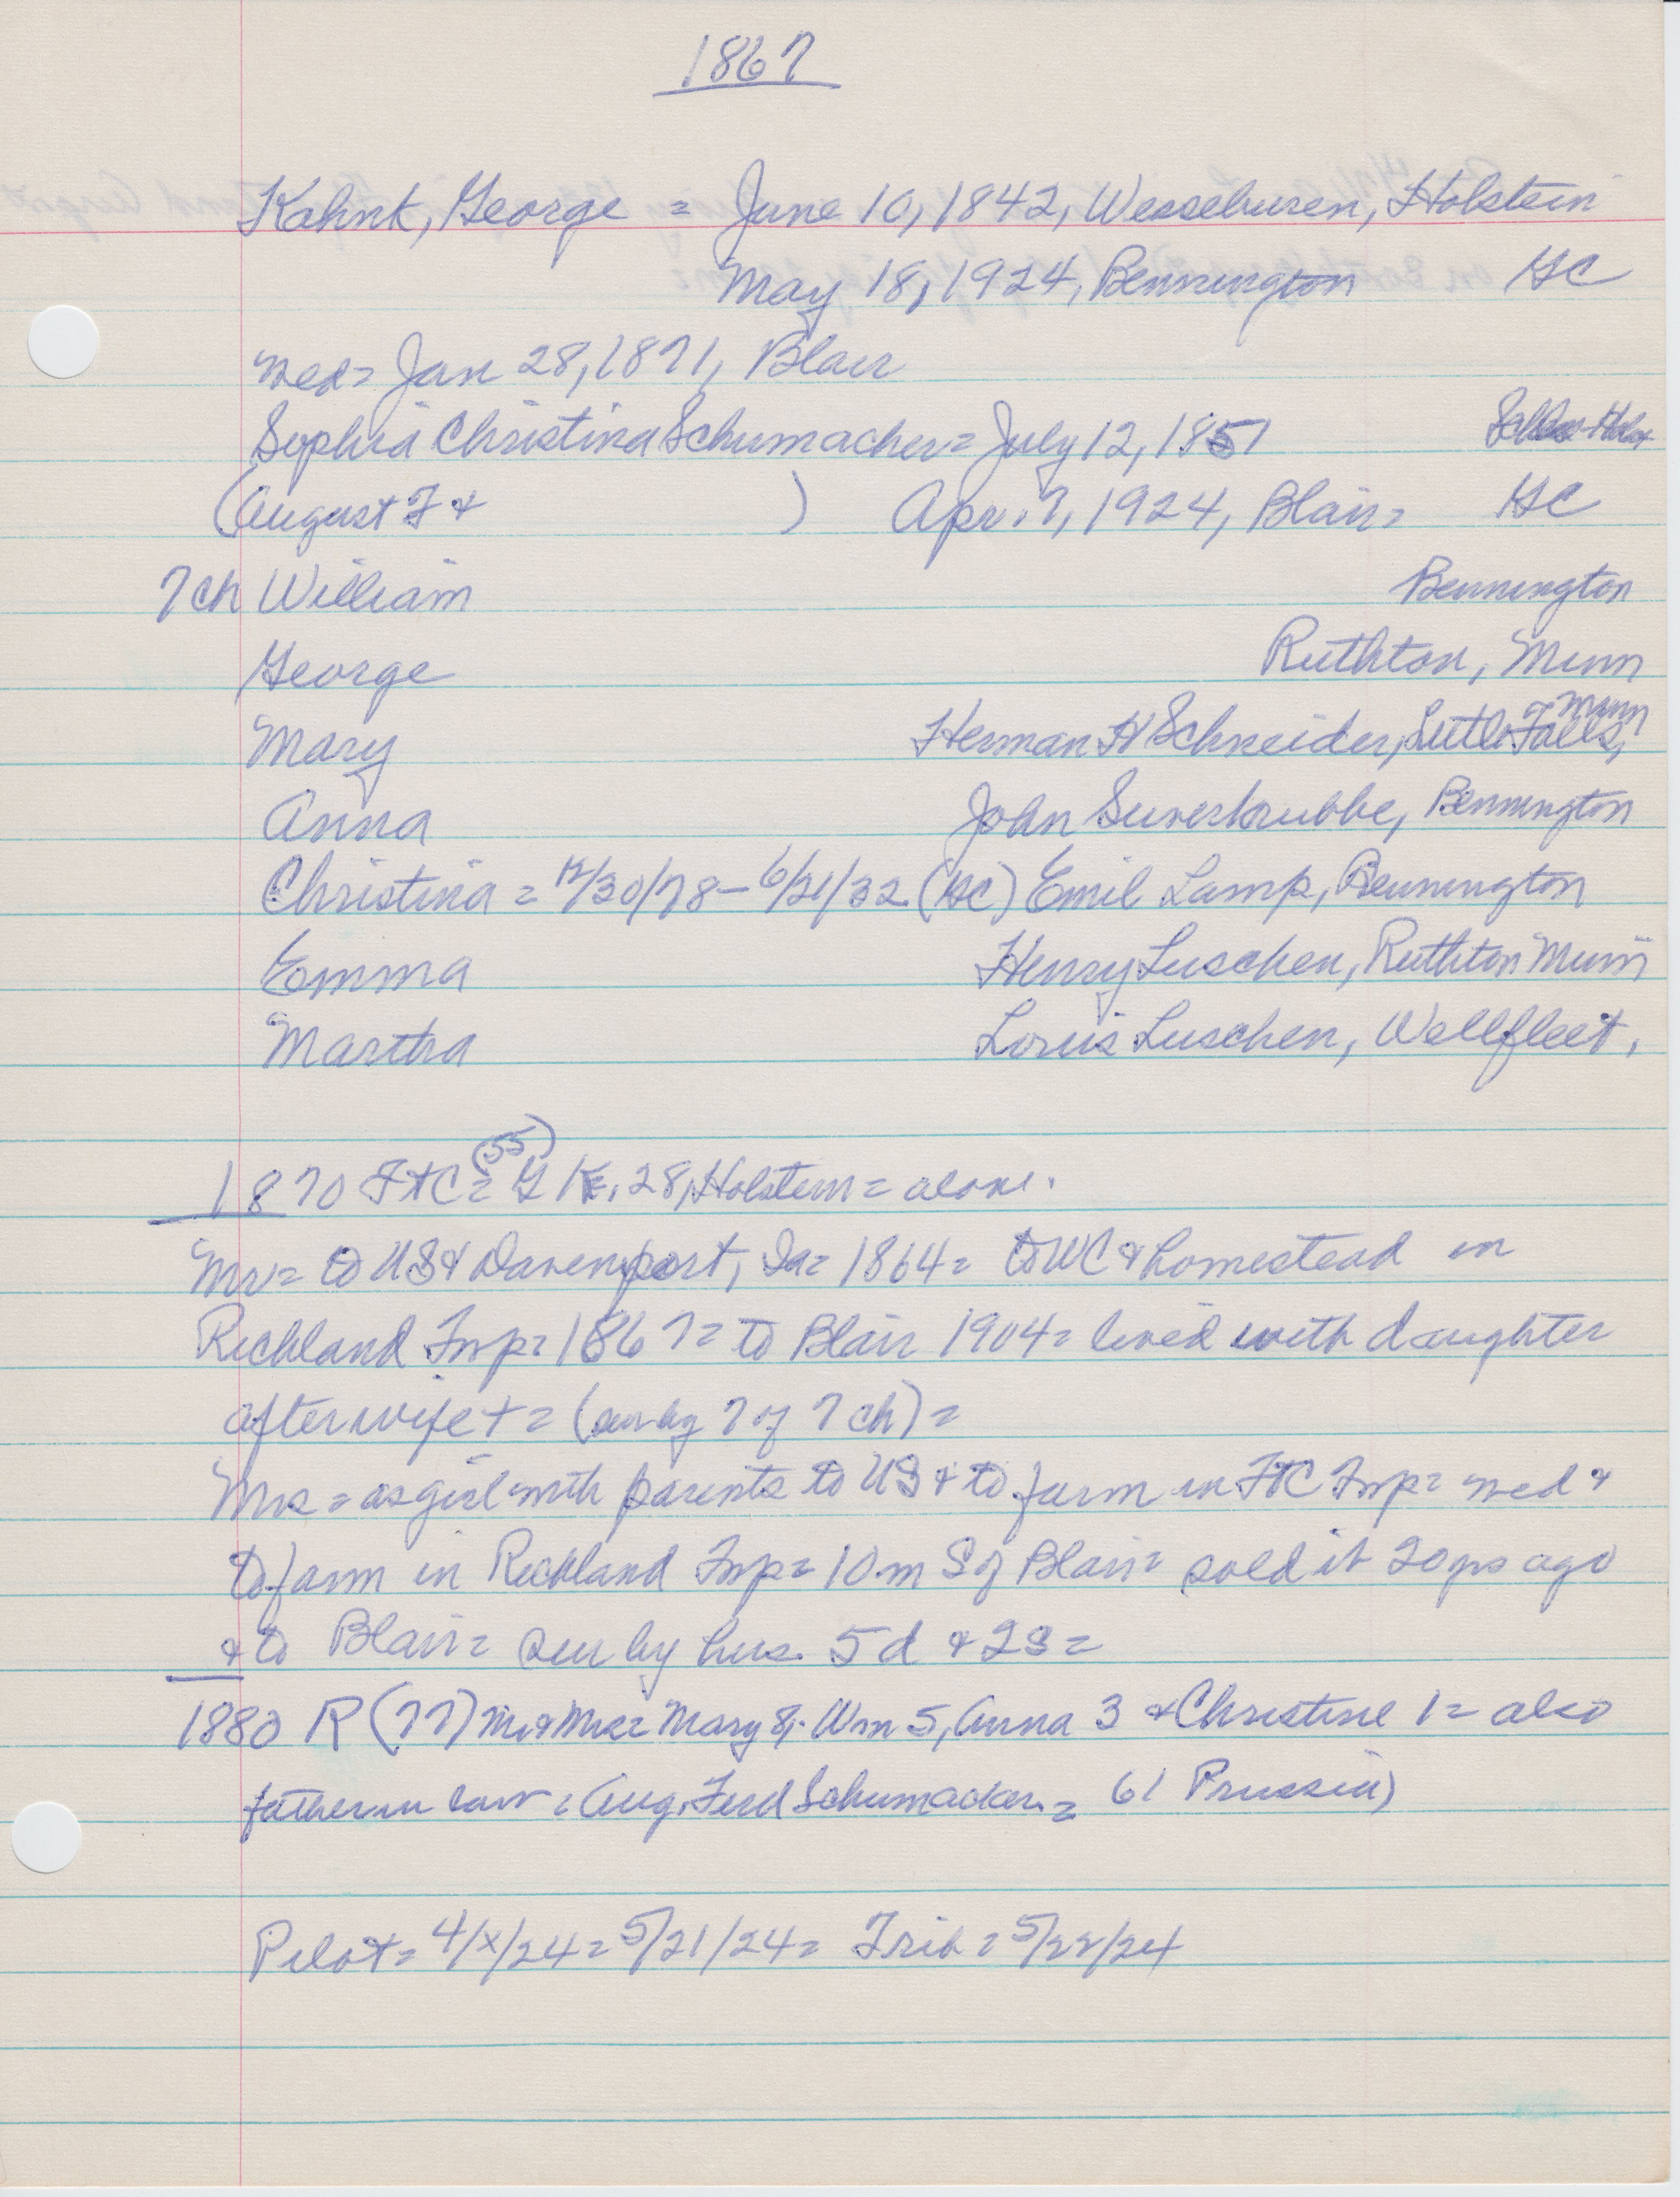 1867
Kahnk, George = June 10, 1842, Wesseburen, Holstein
May 18, 1924, Bennington GC
med = Jan 28, 1871, Blair
Sophia Christina Schumacher = July 12, 1851
(August F & ) Apr. 7, 1924, Blair = GC
7 ch William Bennington
George Ruthton, Minn
Mary Herman H Schneider, Little Falls, Minn
Anna John Suverkrubbe, Bennington
Christina = 12/30/78 - 6/21/32 (GC) Emil Lamp, Bennington
Emma Henry Luschen, Ruthton Minn
Martha Louis Luschen, Wellfleet,
1870 FtC = (55) G K, 28, Holstein = alone.
Mr = to US & Davenport, Ia = 1864 = to WC & homestead in
Richland Twp = 1867 = to Blair 1904 = lived with daughter
after wife + = (sur by 7 of 7 ch) =
Mrs = as girl with parents to US & to farm in FtC Twp = med &
to farm in Richland Twp = 10 m S of Blair = sold it 20 yrs ago
& to Blair = sur by hus. 5 d & 2 s =
1880 R (77) Mr & Mrs = Mary 8, Wm 5, Anna 3 & Christine 1 = also
father in law (Aug. Ferd Schumacker = 61 Prussia)
Pilot = 4/x/24 = 5/21/24 = Trib = 5/22/24